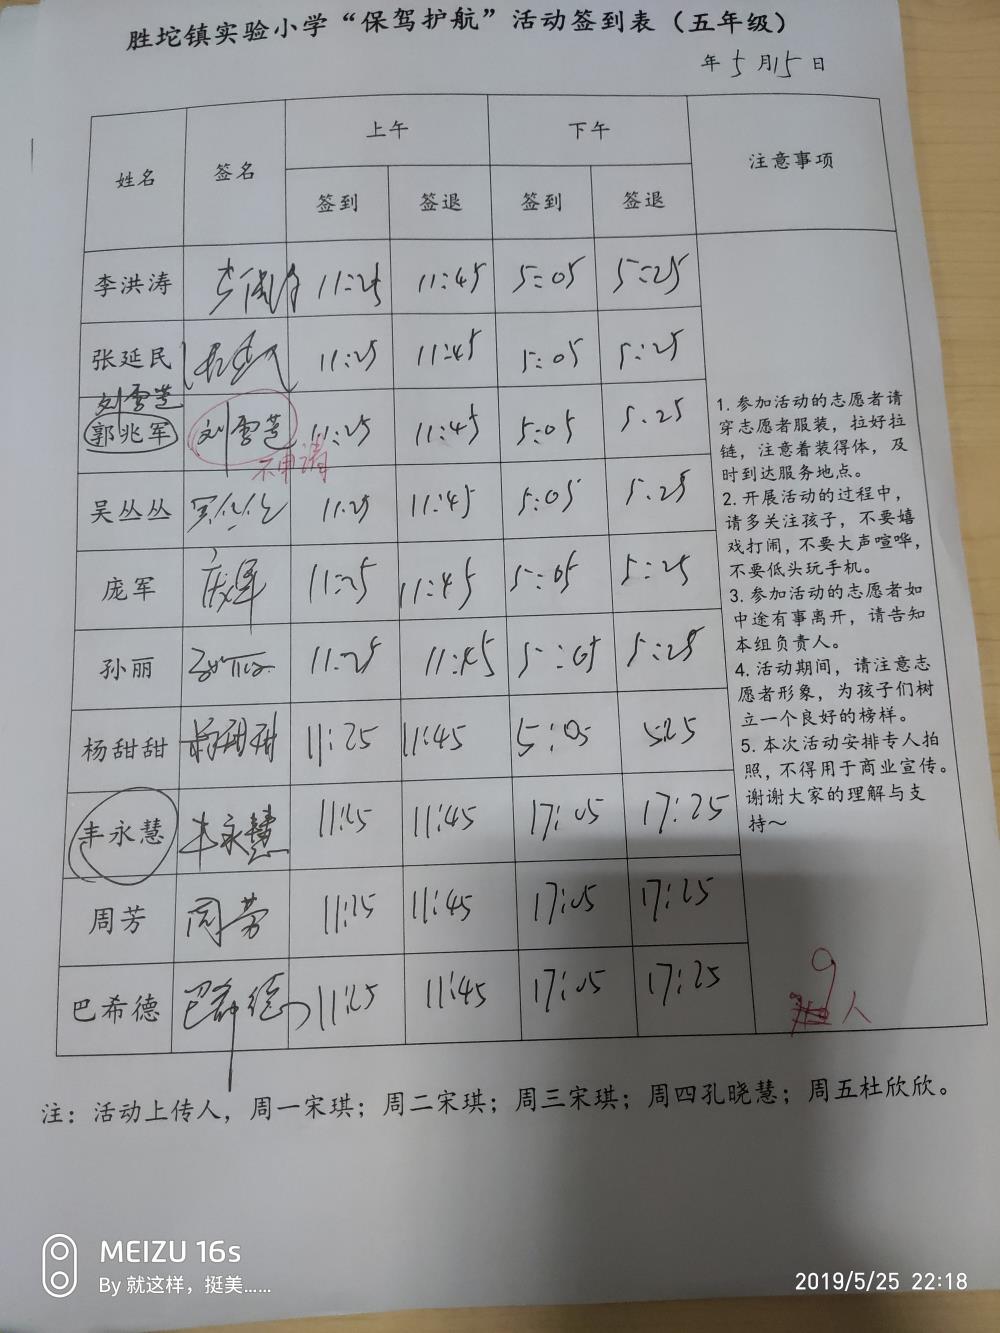 胜坨镇实验小学“保驾护航”活动签到表（五年级）
年 5 月15 日
姓名 签名 上午 下午 注意事项
签到 签退 签到 签退
李洪涛 11:25 11:45 5:05 5:25
张延民 11:25 11:45 5:05 5:25
刘雪芝
郭兆军 刘雪芝 11:25 11:45 5:05 5.25
不申请
吴丛丛 吴丛丛 11:25 11:45 5:05 5.25
庞军 庞军 11:25 11:45 5:05 5:25
孙丽 11:25 11:45 5:05 5:25
杨甜甜 杨甜甜 11:25 11:45 5:05 5:25
丰永慧 丰永慧 11:25 11:45 17:05 17:25
周芳 周芳 11:25 11:45 17:05 17:25
巴希德 巴希德 11:25 11:45 17:05 17:25
1. 参加活动的志愿者请
穿志愿者服装，拉好拉
链，注意着装得体，及
时到达服务地点。
2. 开展活动的过程中，
请多关注孩子，不要嬉
戏打闹，不要大声喧哗，
不要低头玩手机。
3. 参加活动的志愿者如
中途有事离开，请告知
本组负责人。
4. 活动期间，请注意志
愿者形象，为孩子们树
立一个良好的榜样。
5. 本次活动安排专人拍
照，不得用于商业宣传。
谢谢大家的理解与支
持～
9人
注：活动上传人，周一宋琪；周二宋琪；周三宋琪；周四孔晓慧；周五杜欣欣。
MEIZU 16s
By 就这样，挺美......
2019/5/25 22:18